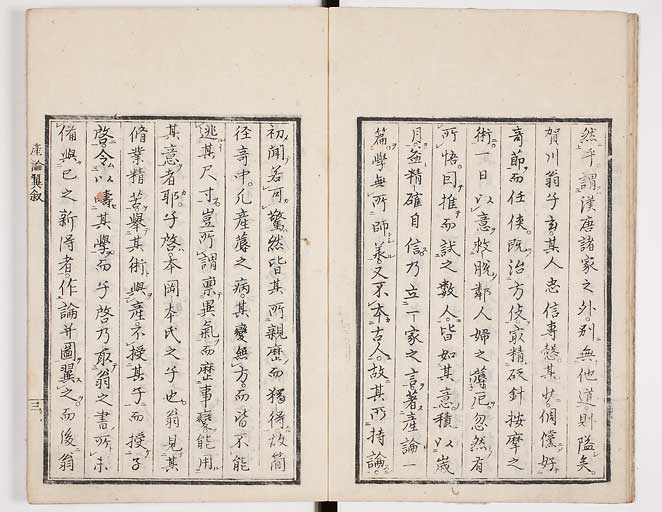 然乎謂漢唐諸家之外別無他道則隘矣
賀川翁子玄其人忠信專愨其少倜儻好
奇節而任俠既治方伎最精砭針按摩之
術一日以意救脫鄰人婦之蓐厄忽然有
所悟因推而試之數人皆如其意積以歲
月益精確自信乃立一家之言著產論一
篇學無所師義又不本古人故其所持論
初聞若可驚然皆其所親歷而獨得故簡
徑奇中凡產蓐之病其變無方而皆不能
逃其尺寸豈所謂稟異氣而歷事變能用
其意者耶子啓本岡本氏之子也翁見其
脩業精苦舉其術與產不授其子而授子
啓令以疇其學而子啓乃取翁之書所未
備與已之新得者作論并圖翼之而後翁
產論翼敘
三